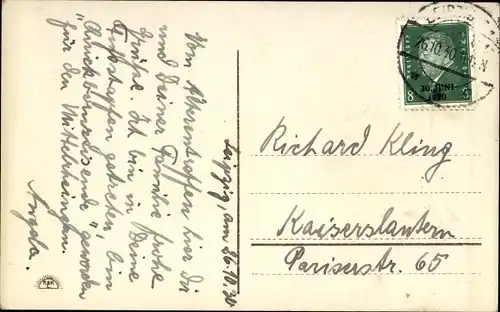 Leipzig, am 26.10.30
Vom Altpentreffen hier Dir
und Deiner Familie frohe
Grüße. Ich bin in Deine
Fußstapfen getreten, bin
"Glücksbonreisende" geworden
für den Mittelrheingau.
Angela.
LEIPZIG
26.10.30
8
30. JUNI
1930
8
Richard Kling
Kaiserslautern
Pariserstr. 65